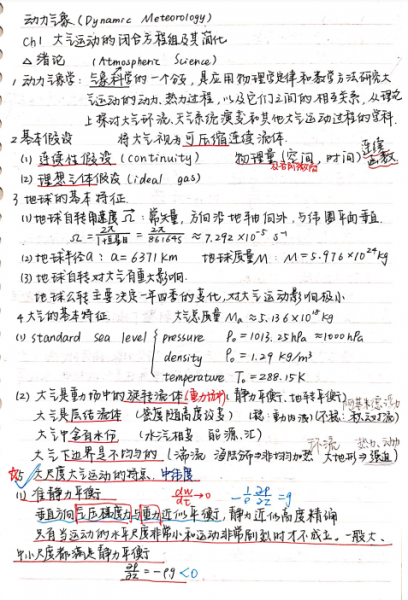 动力气象 (Dynamic Meteorology)
Ch1 大气运动的闭合方程组及其简化
△ 绪论 (Atmospheric Science)
1. 动力气象学: 气象科学的一个分支, 是应用物理学定律和数学方法研究大
气运动的动力、热力过程, 以及它们之间的相互关系, 从理论
上探讨大气环流、天气系统演变和其他大气运动过程的学科.
2 基本假设 将大气视为可压缩连续流体.
(1) 连续性假设 (continuity) 物理量 (空间, 时间) 连续函数
(2) 理想气体假设 (ideal gas)
3 地球的基本特征
(1) 地球自转角速度 Ω : 常矢量, 方向沿地轴向外, 与纬圈平面垂直
Ω = 2π/1恒星日 = 2π/86164s ≈ 7.292×10⁻⁵ s⁻¹
(2) 地球半径a: a = 6371 km 地球质量M: M = 5.976×10²⁴ kg
(3) 地球自转对大气有重大影响.
地球公转主要决定一年四季的变化, 对大气运动影响极小
4 大气的基本特征. 大气总质量 Ma ≈ 5.136×10¹⁸ kg
(1) standard sea level { pressure P₀ = 1013.25hPa ≈ 1000hPa
density ρ₀ = 1.29 kg/m³
temperature T₀ = 288.15K
(2) 大气是重力场中的旋转流体 (重力作用) (静力平衡、地转平衡)
大气是层结流体 (密度随高度改变)
大气中含有水份 (水汽相变 能源、汇) 环流 热力、动力
大气下边界是不均匀的 (湍流
5 大尺度大气运动的特点. 中纬度
(1) 准静力平衡 dw/dt → 0 -1/ρ ∂p/∂z = g
垂直方向气压梯度力与重力近似平衡, 静力近似高度精确
只有当运动的水平尺度非常小和运动非常剧烈时才不成立. 一般大、
中小尺度都满足静力平衡
∂p/∂z = -ρg < 0